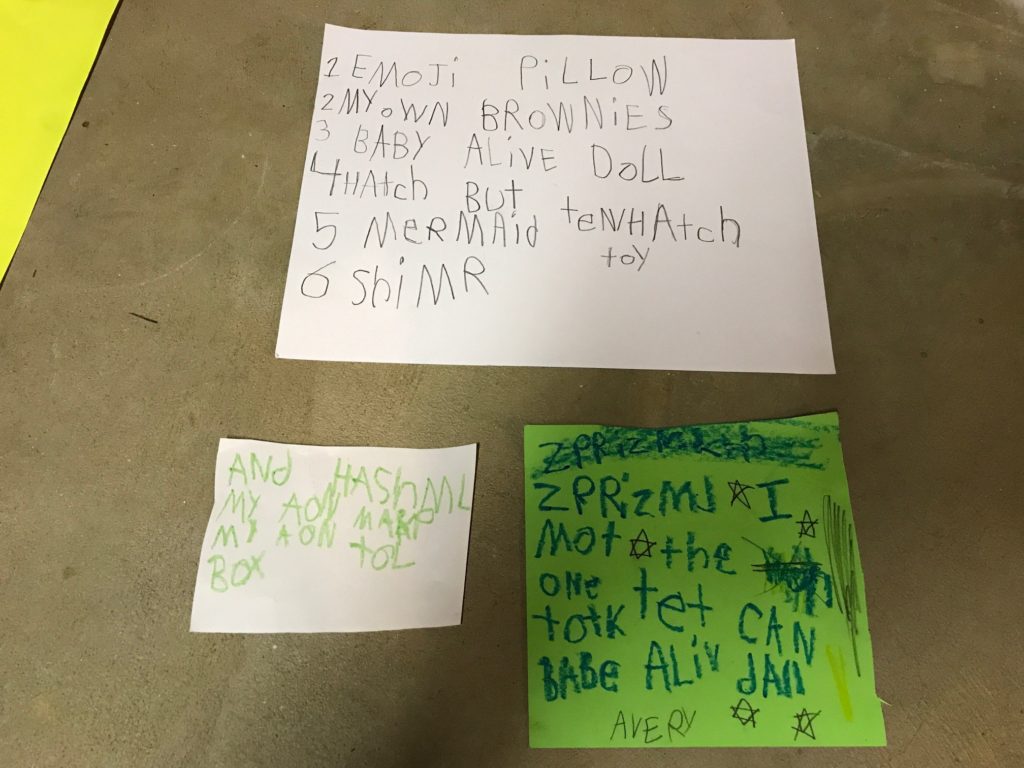 1 EMOJi PiLLOW
2 MY OWN BROWNiES
3 BABY ALiVE DOLL
4 HAtch BUT
5 MERMAid teNHAtch
toY
6 ShiMR
ANd HAShML
MY AON
MY AON
BOX TOL
ZPPRizM
ZPRizMJ I
MOt the
ONe tet
totK CAN
BABe ALiV dAll
AVERY